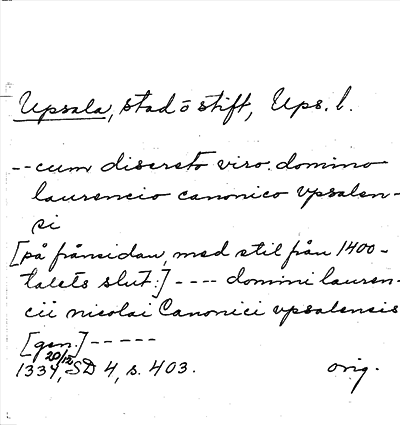 Upsala, stad o stift, Ups. l.
-- cum discreto viro domino
laurencio canonico vpsalen-
si
[på frånsidan, med stil från 1400-
talets slut:] ---- domini lauren-
cii nicolai Canonici vpsalensis
[gen.] -----
20/12
1334, SD 4, s. 403. orig.